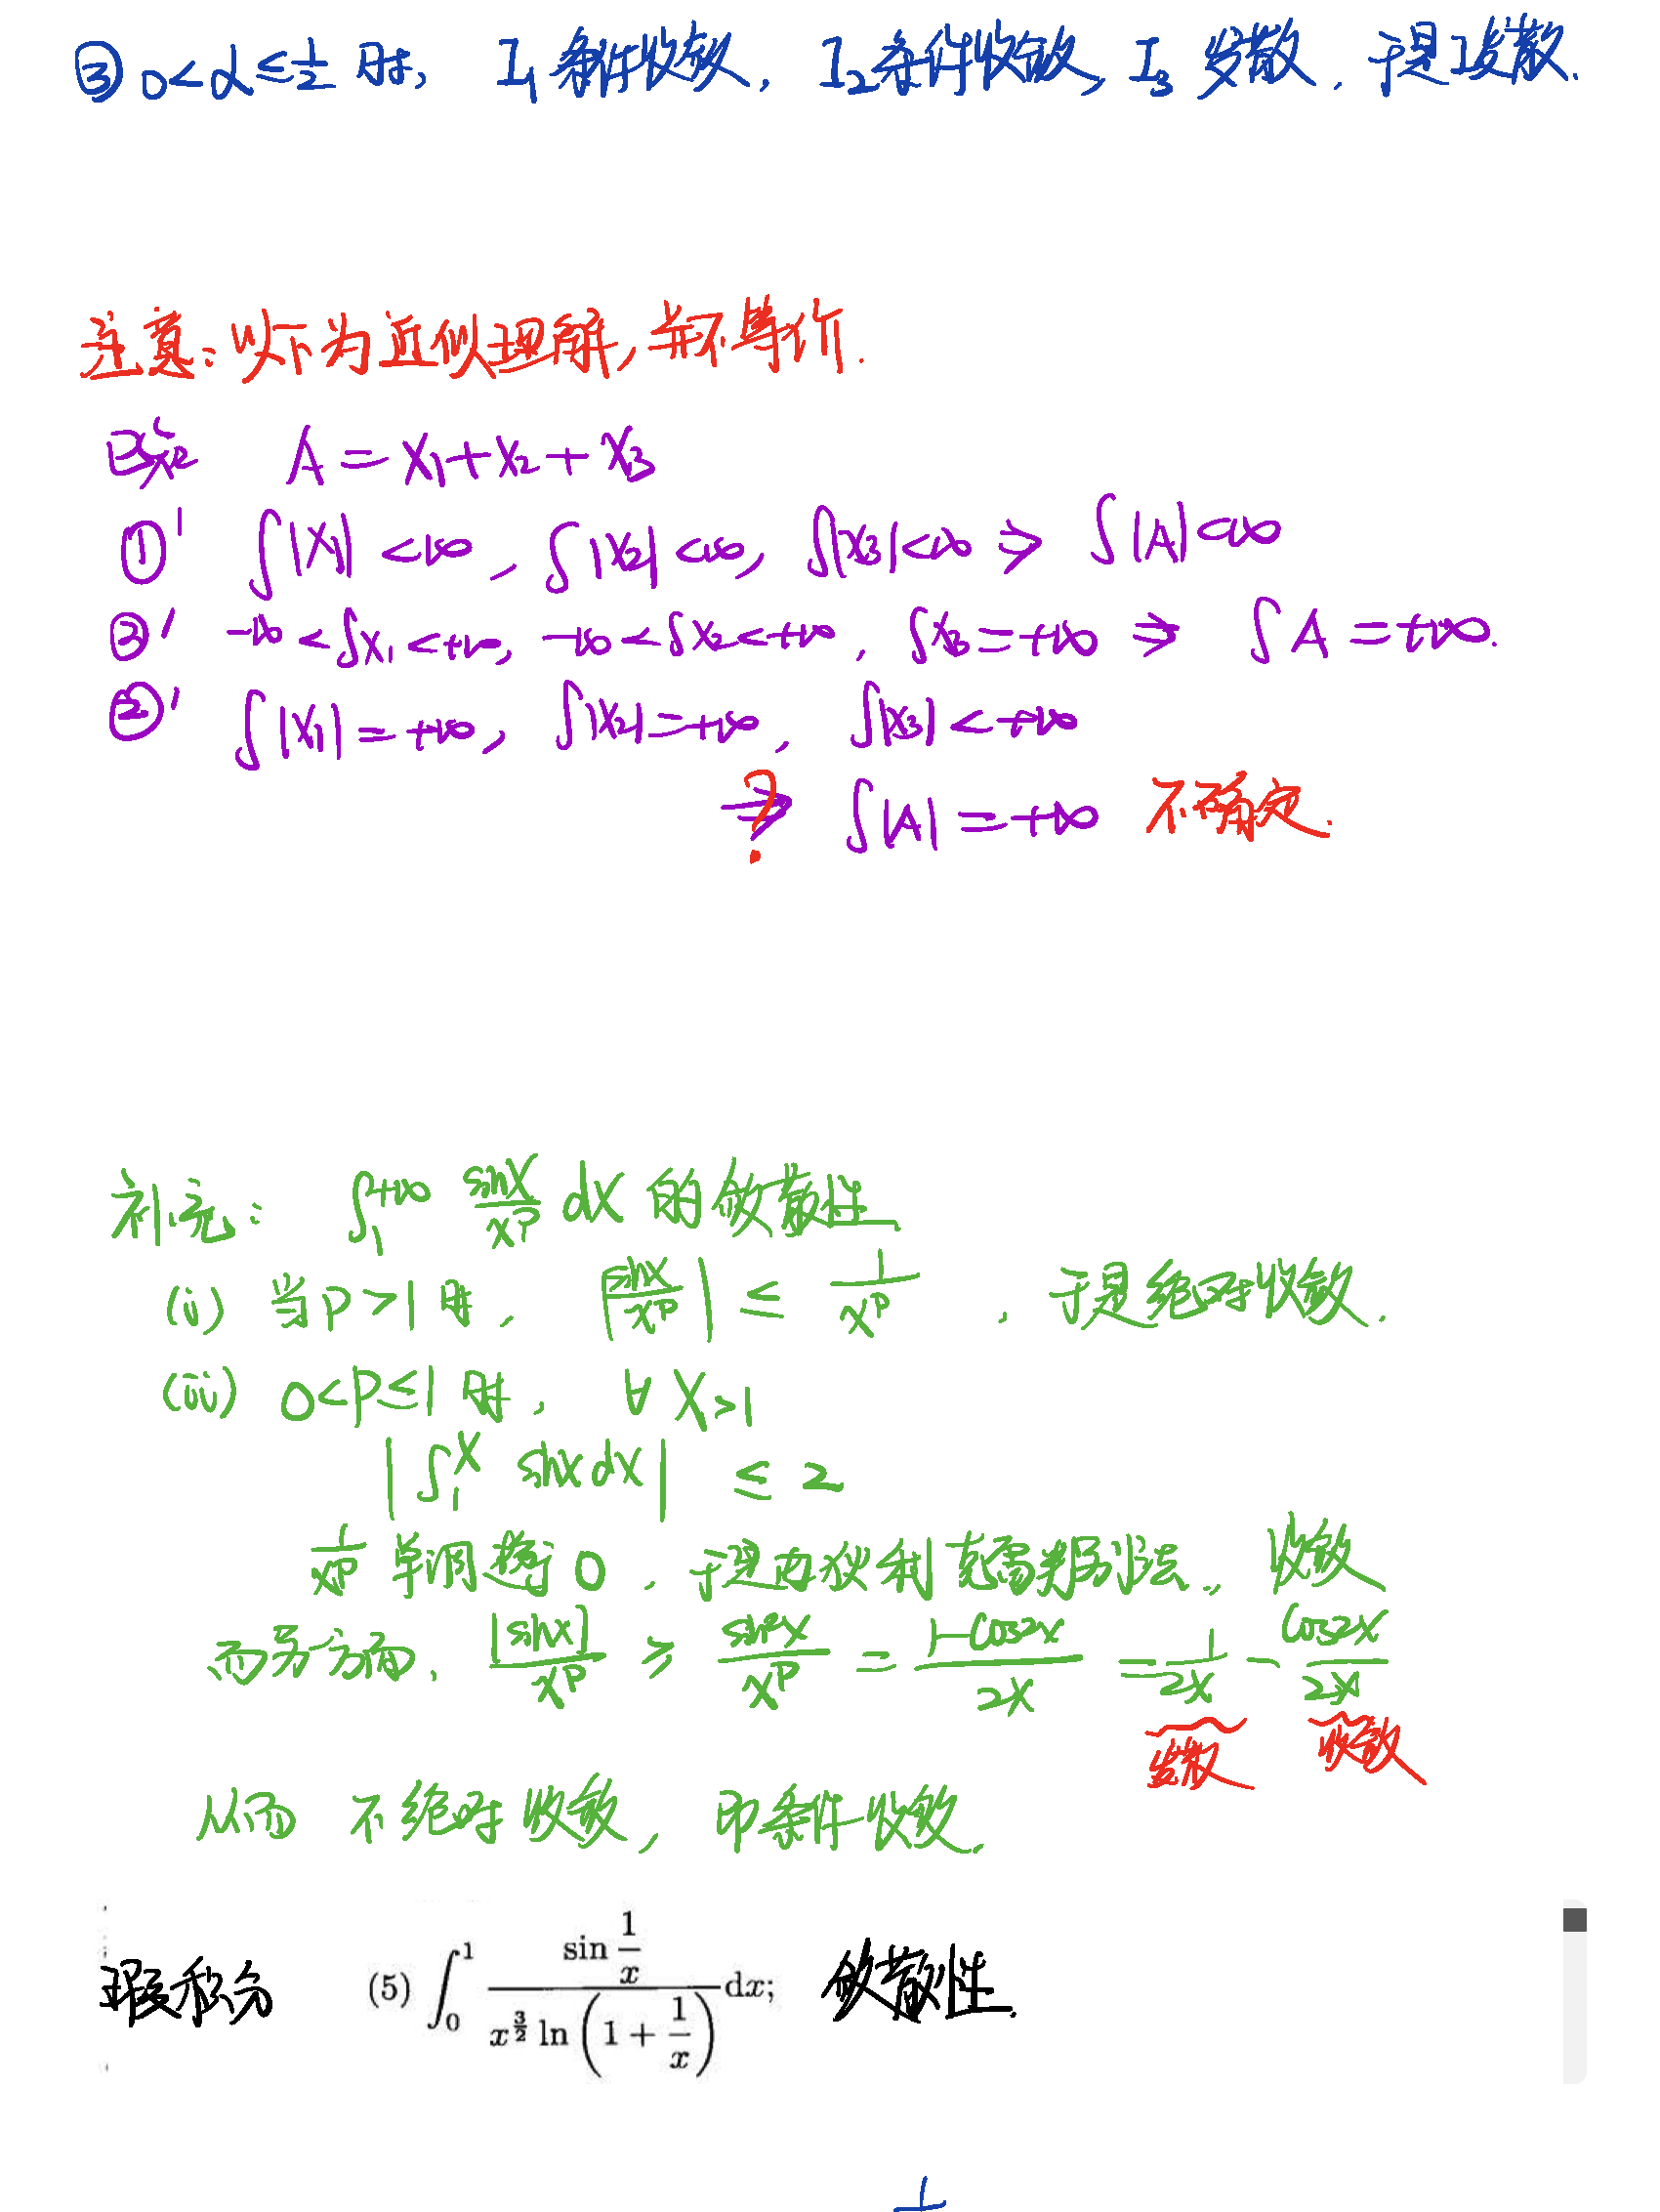 ③ 0<α≤1/2 时, I₁ 条件收敛, I₂ 条件收敛, I₃ 发散. 于是I发散.
注意: 以下为近似理解, 并不等价.
已知 A = X₁+X₂+X₃
①' ∫|X₁| <+∞, ∫|X₂| <+∞, ∫|X₃|<+∞ ⇒ ∫|A|<+∞
③' -∞<∫X₁<+∞, -∞<∫X₂<+∞, ∫X₃=+∞ ⇒ ∫A=+∞.
②' ∫|X₁|=+∞, ∫|X₂|=+∞, ∫|X₃|<+∞
⇒ ? ∫|A|=+∞ 不确定.
补充: ∫₁^{+∞} sinx/x^p dx 的敛散性
(i) 当p>1时, |sinx/x^p| ≤ 1/x^p, 于是绝对收敛.
(ii) 0<p≤1时, ∀ X>1
|∫₁^X sinx dx| ≤ 2
1/x^p 单调趋于0, 于是由狄利克雷判别法, 收敛
而另一方面, |sinx|/x^p ≥ sin²x/x^p = 1-cos2x/2x = 1/2x - cos2x/2x
发散 收敛
从而 不绝对收敛, 即条件收敛.
瑕积分 (5) ∫₀¹ sin 1/x / x^{3/2} ln(1+1/x) dx; 敛散性